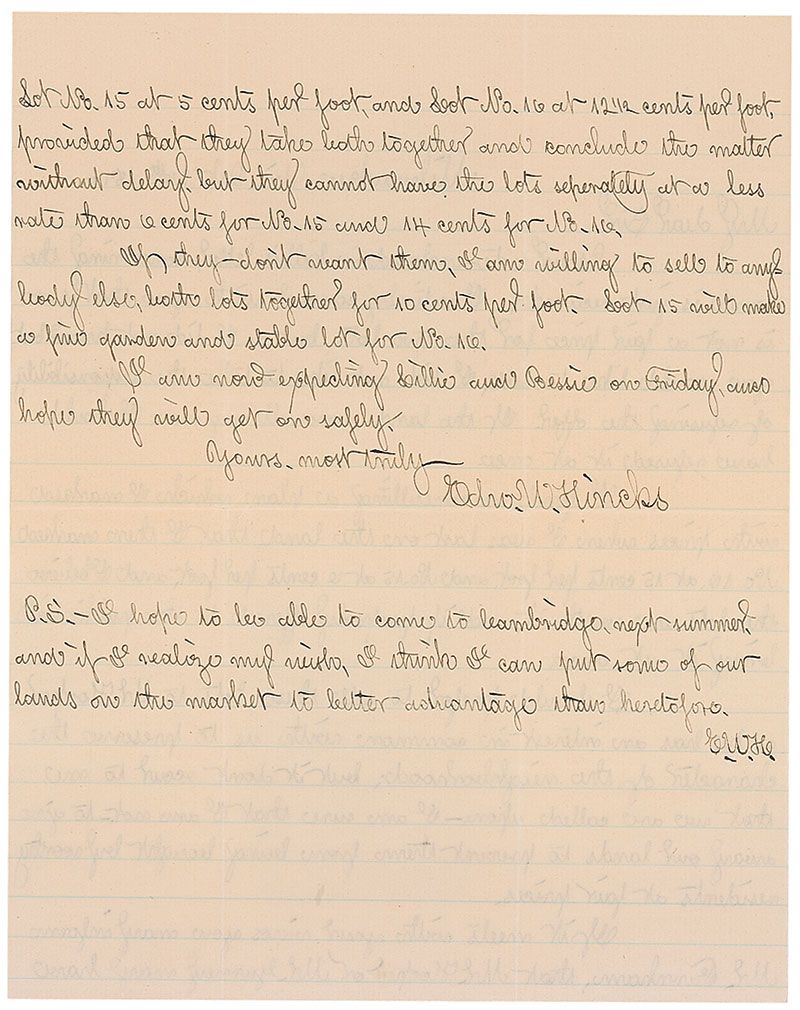 Lot No. 15 at 5 cents per foot, and Lot No. 16 at 12 1/2 cents per foot,
provided that they take both together and conclude the matter
without delay, but they cannot have the lots seperately at a less
rate than 6 cents for No. 15 and 14 cents for No. 16.
If they don't want them, I am willing to sell to any-
body else, both lots together for 10 cents per foot. Lot 15 will make
a fine garden and stable lot for No. 16.
I am now expecting Lillie and Bessie on Friday, and
hope they will get on safely.
Yours, most truly
Edw. W. Hincks
P.S. - I hope to be able to come to Cambridge, next summer,
and if I realize my wish, I think I can put some of our
lands on the market to better advantage than heretofore.
E.W.H.